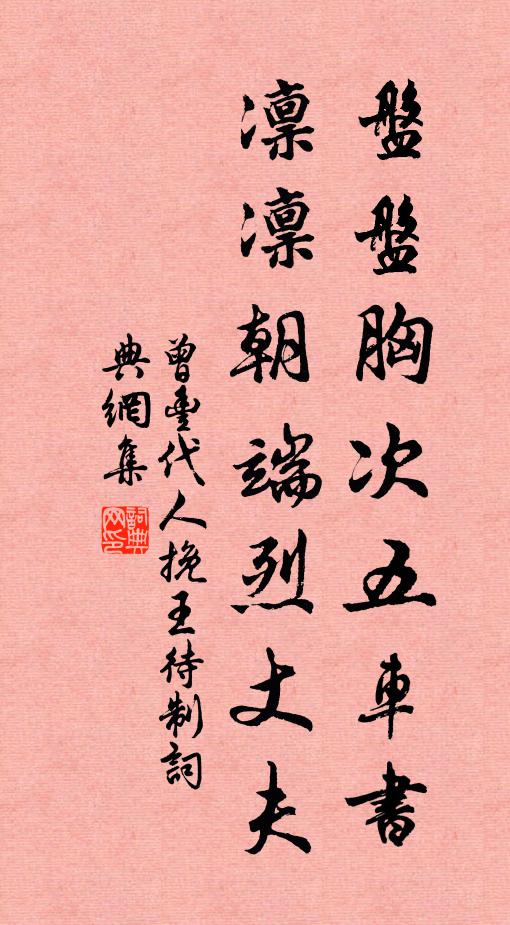 盤盤胸次五車書
凜凜朝端烈丈夫
曾豐代人挽王待制詞
典網集
詞典网印